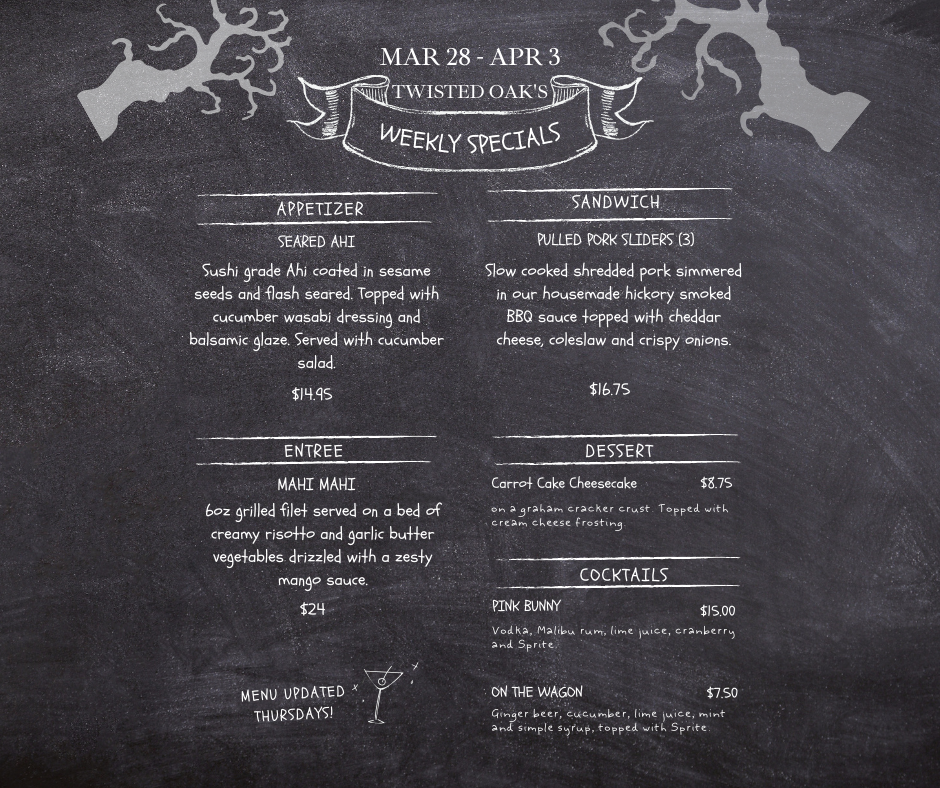 MAR 28 - APR 3
TWISTED OAK'S
WEEKLY SPECIALS
APPETIZER
SEARED AHI
Sushi grade Ahi coated in sesame
seeds and flash seared. Topped with
cucumber wasabi dressing and
balsamic glaze. Served with cucumber
salad.
$14.95
ENTREE
MAHI MAHI
6oz grilled filet served on a bed of
creamy risotto and garlic butter
vegetables drizzled with a zesty
mango sauce.
$24
MENU UPDATED
THURSDAYS!
SANDWICH
PULLED PORK SLIDERS (3)
Slow cooked shredded pork simmered
in our housemade hickory smoked
BBQ sauce topped with cheddar
cheese, coleslaw and crispy onions.
$16.75
DESSERT
Carrot Cake Cheesecake $8.75
on a graham cracker crust. Topped with
cream cheese frosting.
COCKTAILS
PINK BUNNY $15.00
Vodka, Malibu rum, lime juice, cranberry
and Sprite.
ON THE WAGON $7.50
Ginger beer, cucumber, lime juice, mint
and simple syrup, topped with Sprite.